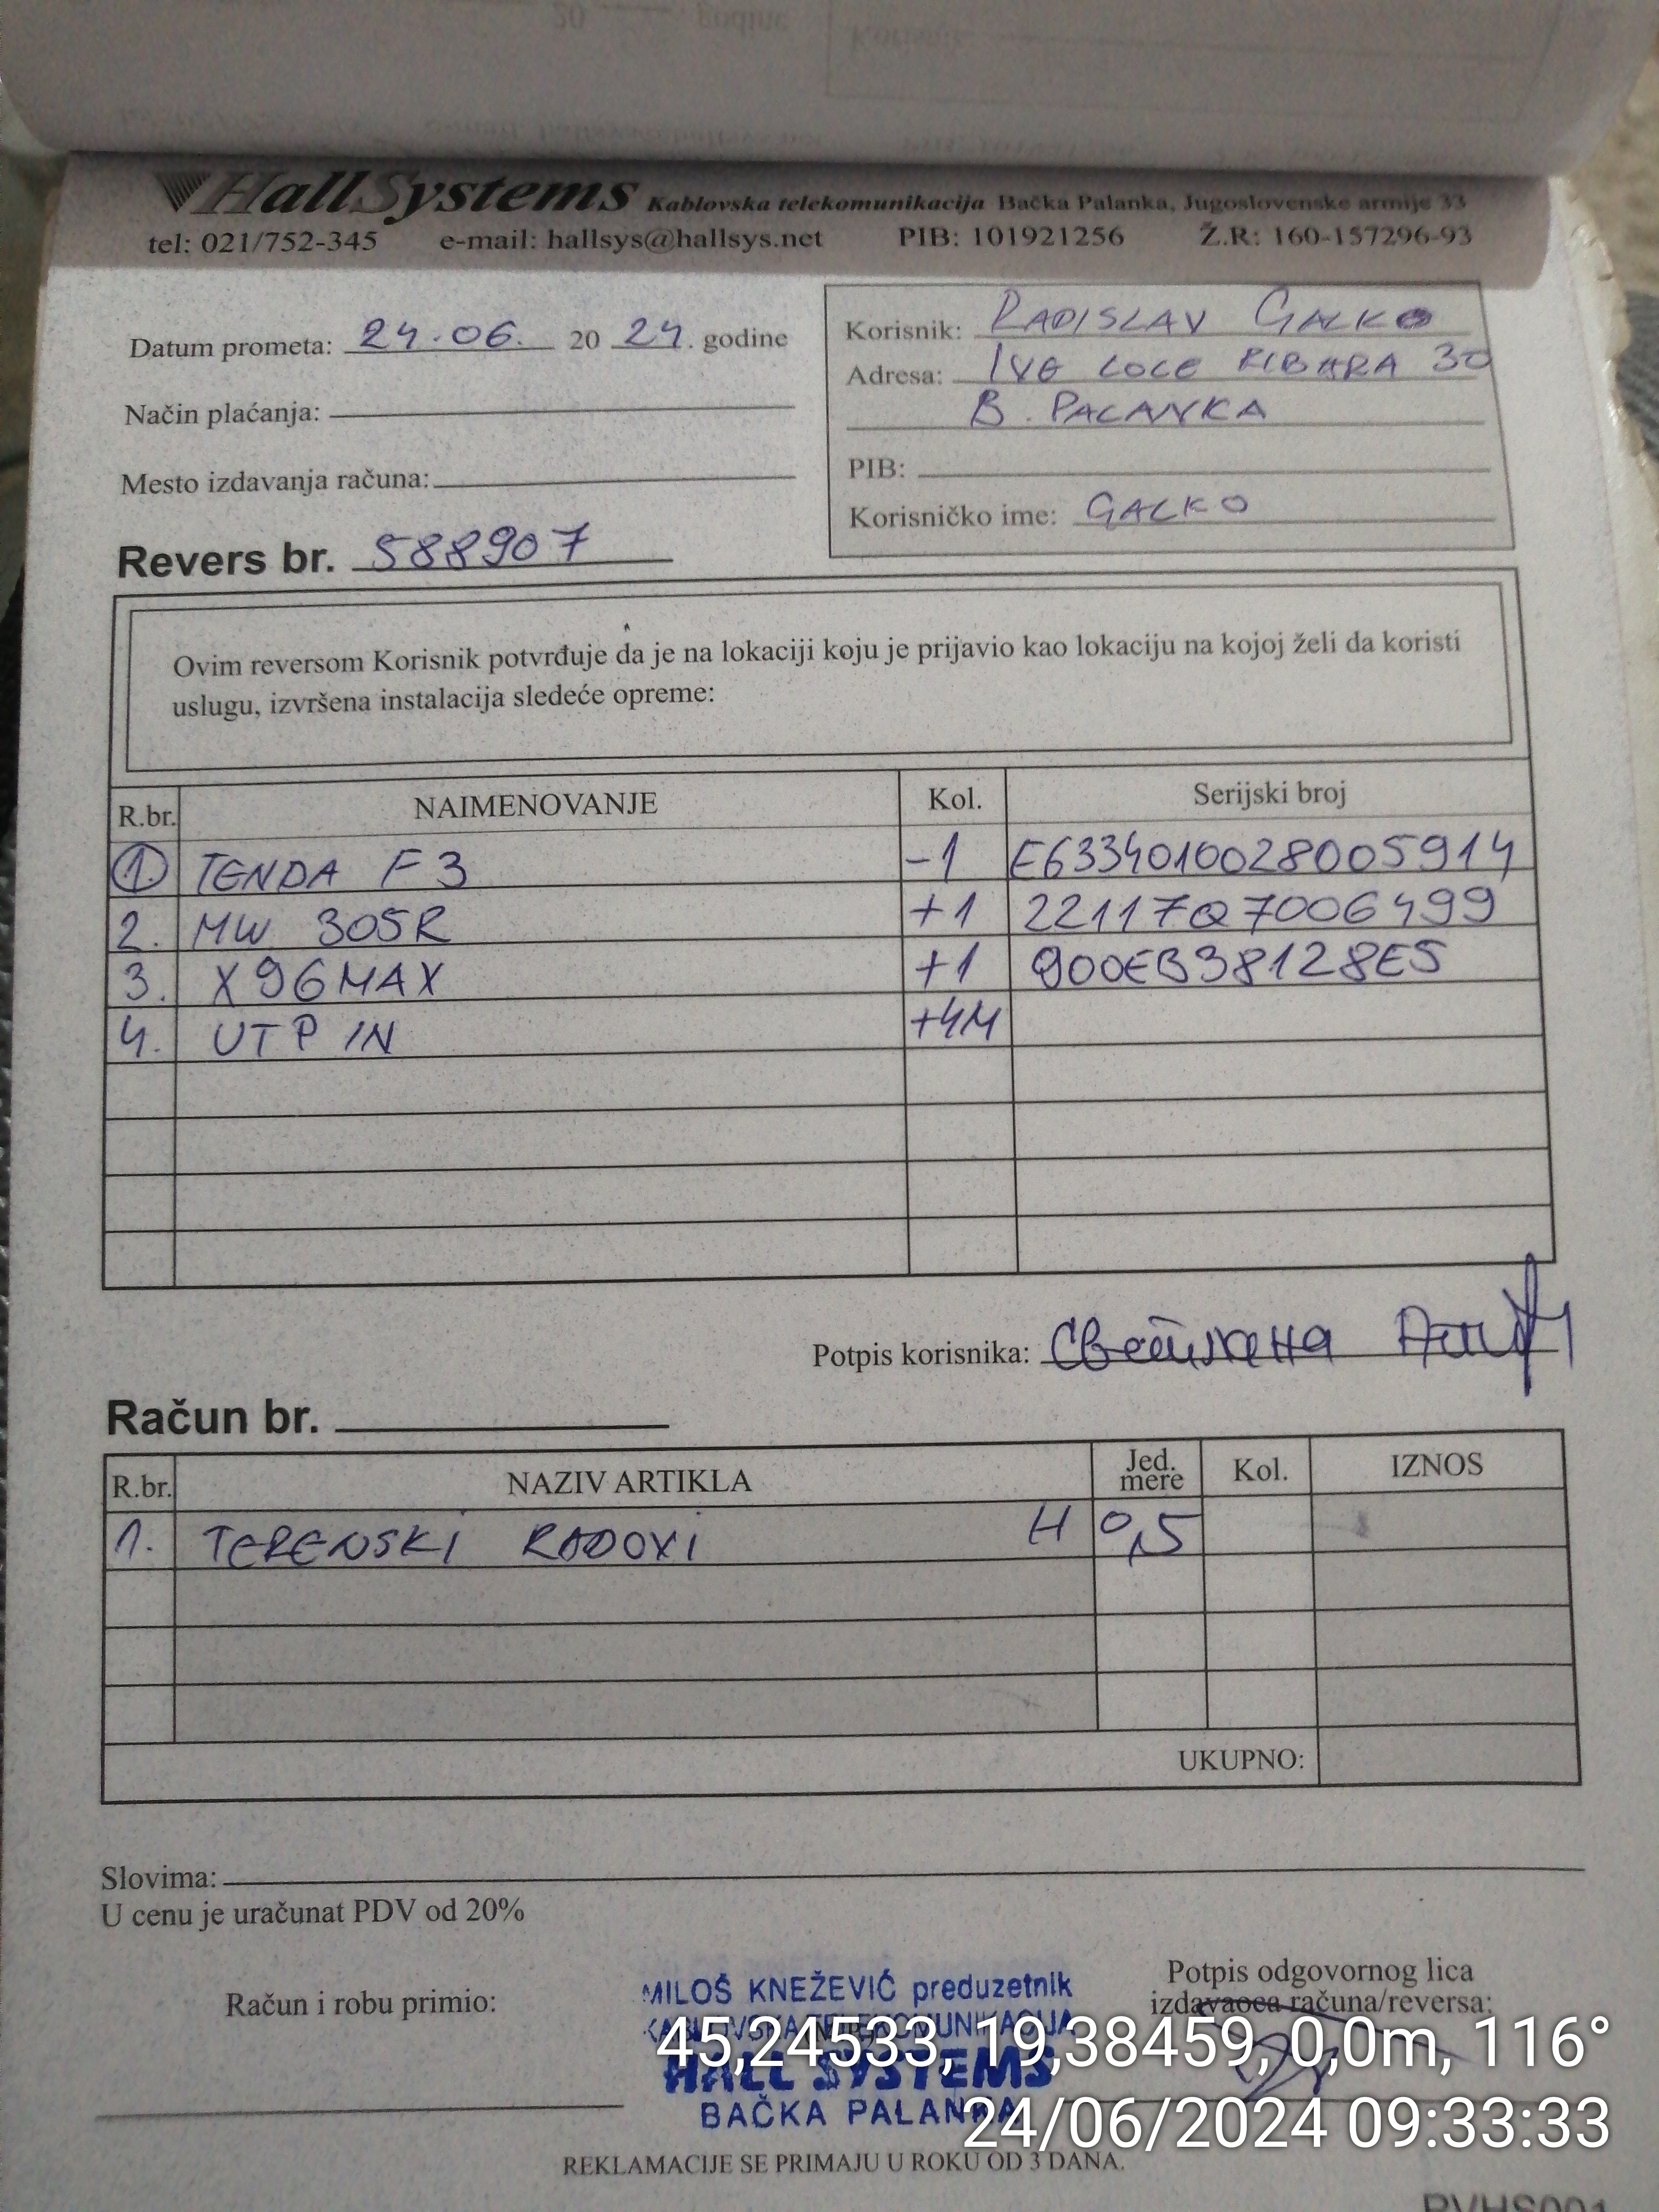 HallSystems Kablovska telekomunikacija Bačka Palanka, Jugoslovenske armije 33
tel: 021/752-345 e-mail: hallsys@hallsys.net PIB: 101921256 Ž.R: 160-157296-93
Datum prometa: 24.06. 20 24. godine
Način plaćanja:
Mesto izdavanja računa:
Korisnik: RADISLAV GALKO
Adresa: IVE LOLE RIBARA 30
B. PALANKA
PIB:
Korisničko ime: GALKO
Revers br. 588907
Ovim reversom Korisnik potvrđuje da je na lokaciji koju je prijavio kao lokaciju na kojoj želi da koristi
uslugu, izvršena instalacija sledeće opreme:
R.br. NAIMENOVANJE Kol. Serijski broj
1. TENDA F3 -1 E6334010028005914
2. MW 305R +1 22117Q7006499
3. X96MAX +1 900EB38128E5
4. UTP IN +4M
Potpis korisnika: Светлана
Račun br.
R.br. NAZIV ARTIKLA Jed. mere Kol. IZNOS
1. TERENSKI RADOVI H 0,5
UKUPNO:
Slovima:
U cenu je uračunat PDV od 20%
Račun i robu primio:
MILOŠ KNEŽEVIĆ preduzetnik
KABLOVSKA TELEKOMUNIKACIJA
HALL SYSTEMS
BAČKA PALANKA
Potpis odgovornog lica
izdavaoca računa/reversa:
45,24533, 19,38459, 0,0m, 116°
24/06/2024 09:33:33
REKLAMACIJE SE PRIMAJU U ROKU OD 3 DANA.